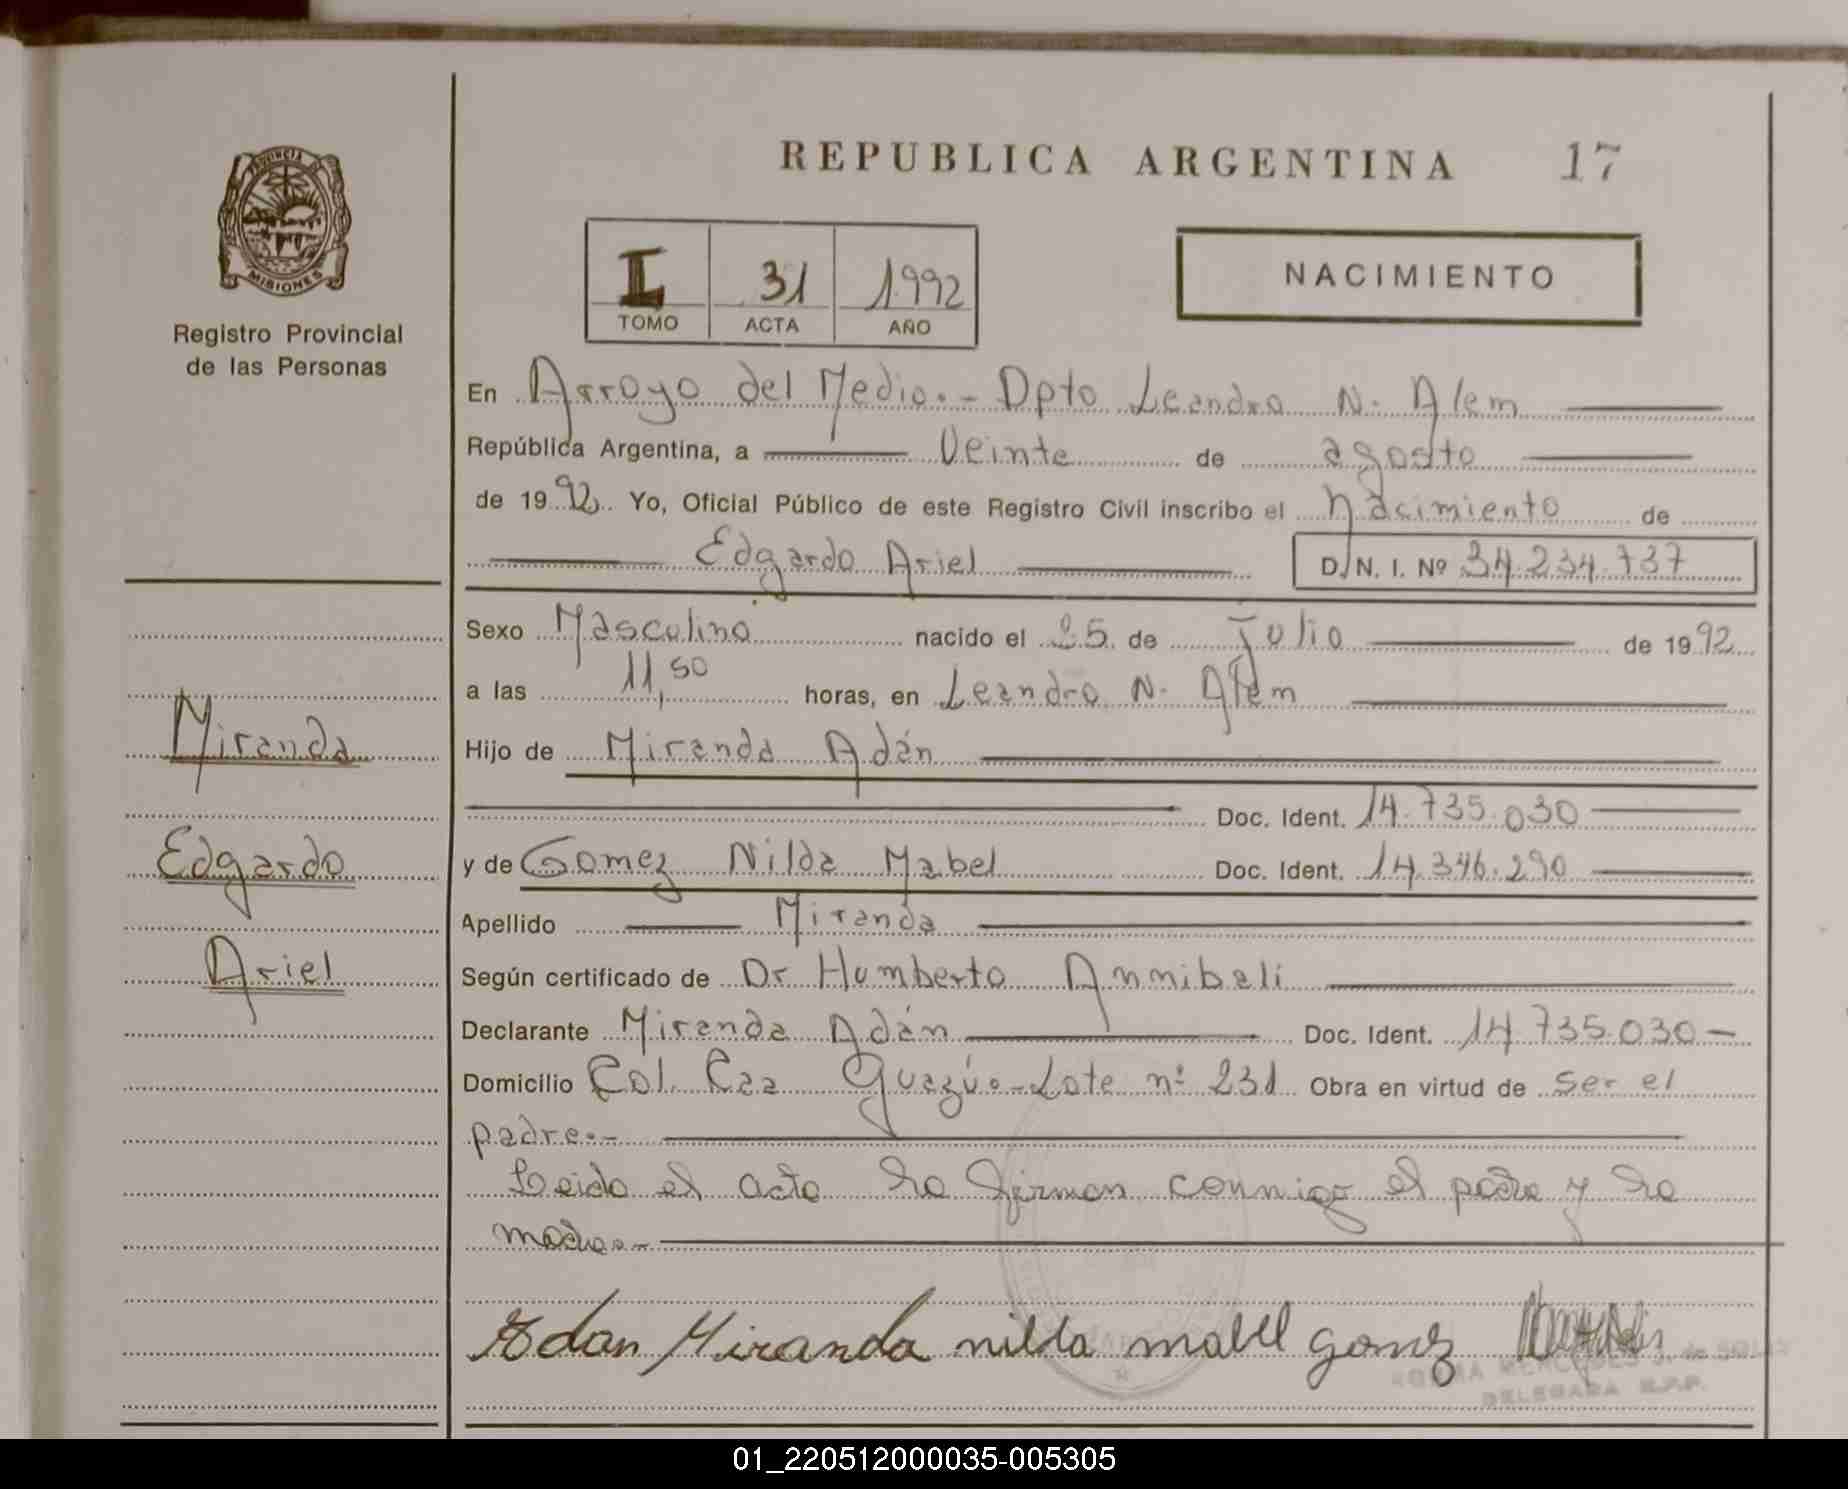 REPUBLICA ARGENTINA 17
PROVINCIA DE MISIONES
Registro Provincial
de las Personas
I 31 1992
TOMO ACTA AÑO
NACIMIENTO
En Arroyo del Medio.- Dpto Leandro N. Alem
República Argentina, a Veinte de agosto
de 1992. Yo, Oficial Público de este Registro Civil inscribo el Nacimiento de
Edgardo Ariel D.N.I. Nº 34.234.737
Sexo Masculino nacido el 25 de Julio de 1992
a las 11,50 horas, en Leandro N. Alem
Hijo de Miranda Adán
Doc. Ident. 14.735.030
y de Gomez Nilda Mabel Doc. Ident. 14.346.290
Apellido Miranda
Según certificado de Dr Humberto Annibali
Declarante Miranda Adán Doc. Ident. 14.735.030-
Domicilio Col. Caa Guazú.- Lote nº 231 Obra en virtud de ser el
padre.-
Leido el acta la firman conmigo el padre y la
madre.-
Miranda
Edgardo
Ariel
Adan Miranda nilda mabel gomez
DELEGADA R.P.P.
01_220512000035-005305